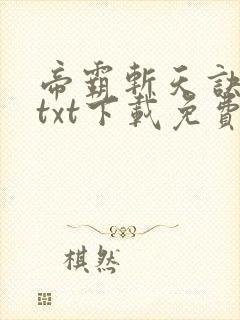 帝霸斬天訣
txt下載免費
棋然